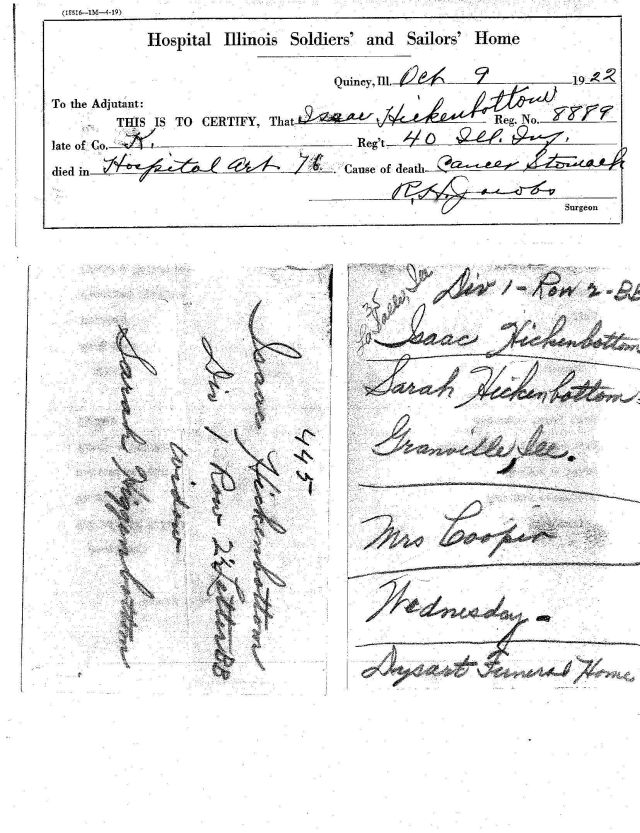 (18516—1M—4-19)
Hospital Illinois Soldiers' and Sailors' Home
Quincy, Ill. Oct 9 1922
To the Adjutant:
THIS IS TO CERTIFY, That Isaac Hickenbottom Reg. No. 8889
late of Co. K. Reg't 40 Ill. Inf.
died in Hospital Cause of death Cancer Stomach
R. H. Jacobs
Surgeon
445
Isaac Hickenbottom
Div 1 Row 2 Letter BB
widow
Sarah Higgenbottom
35
LaSalle, Ill
Div 1 - Row 2 - BB
Isaac Hickenbottom
Sarah Hickenbottom
Granville, Ill.
Mrs Cooper
Wednesday -
Dysart Funeral Home